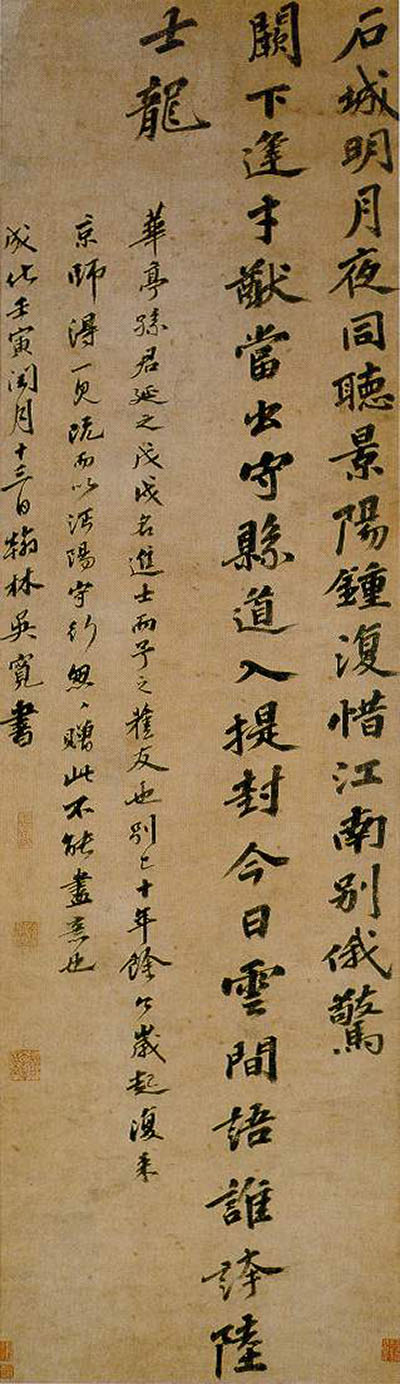 石城明月夜同聽景陽鍾復惜江南別俄驚
闕下逢才猷當出守縣道入提封今日雲間語誰誇陸
士龍
華亭孫君延之戊戌名進士而予之舊友也別已十年餘今歲起復來
京師得一見既而以沔陽守行怱、贈此不能盡意也
成化壬寅閏月十三日翰林吳寬書